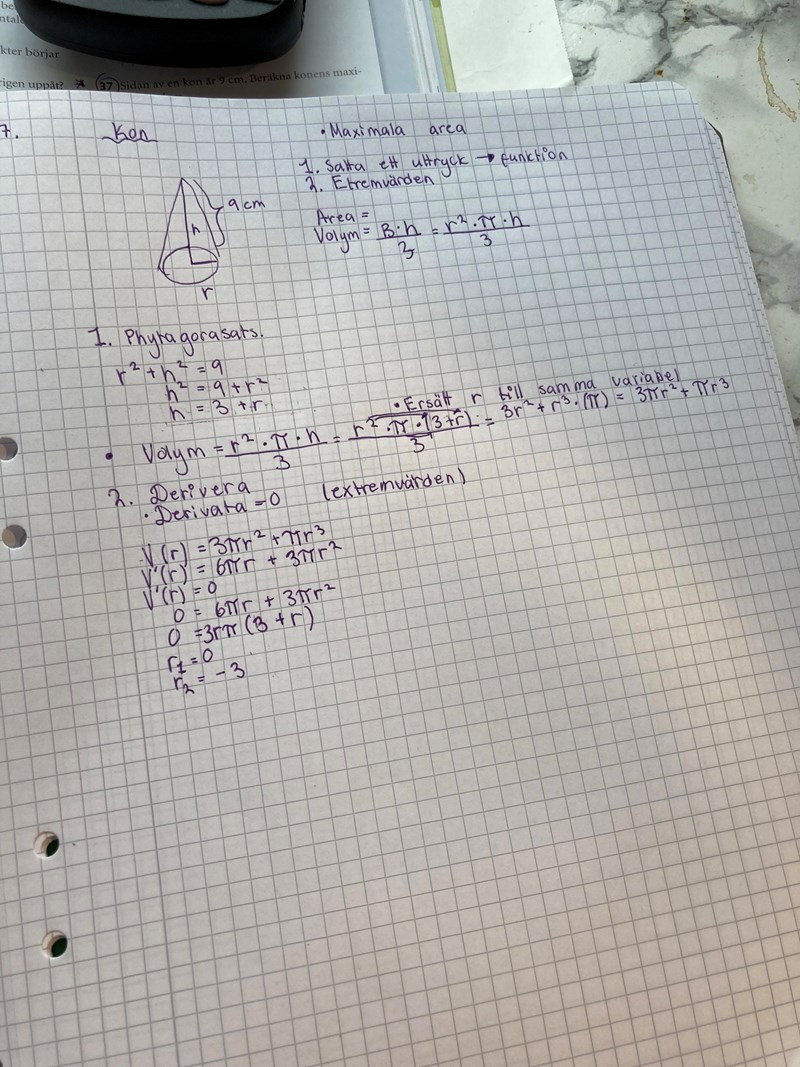 kter börjar
rigen uppåt? * 37 Sidan av en kon är 9 cm. Beräkna konens maxi-
7. Kon
• Maximala area
1. Sätta ett uttryck → funktion
2. Etremvärden
9 cm
h
r
Area =
Volym = B·h/3 = r²·π·h/3
1. Phytagorasats.
r² + h² = 9
h² = 9 + r²
h = 3 + r
• Ersätt r till samma variabel
• Volym = r²·π·h/3 = r²·π·(3+r)/3 = 3r² + r³·(π) = 3πr² + πr³
2. Derivera
• Derivata = 0 (extremvärden)
V(r) = 3πr² + πr³
V'(r) = 6πr + 3πr²
V'(r) = 0
0 = 6πr + 3πr²
0 = 3rπ(3 + r)
r₁ = 0
r₂ = -3